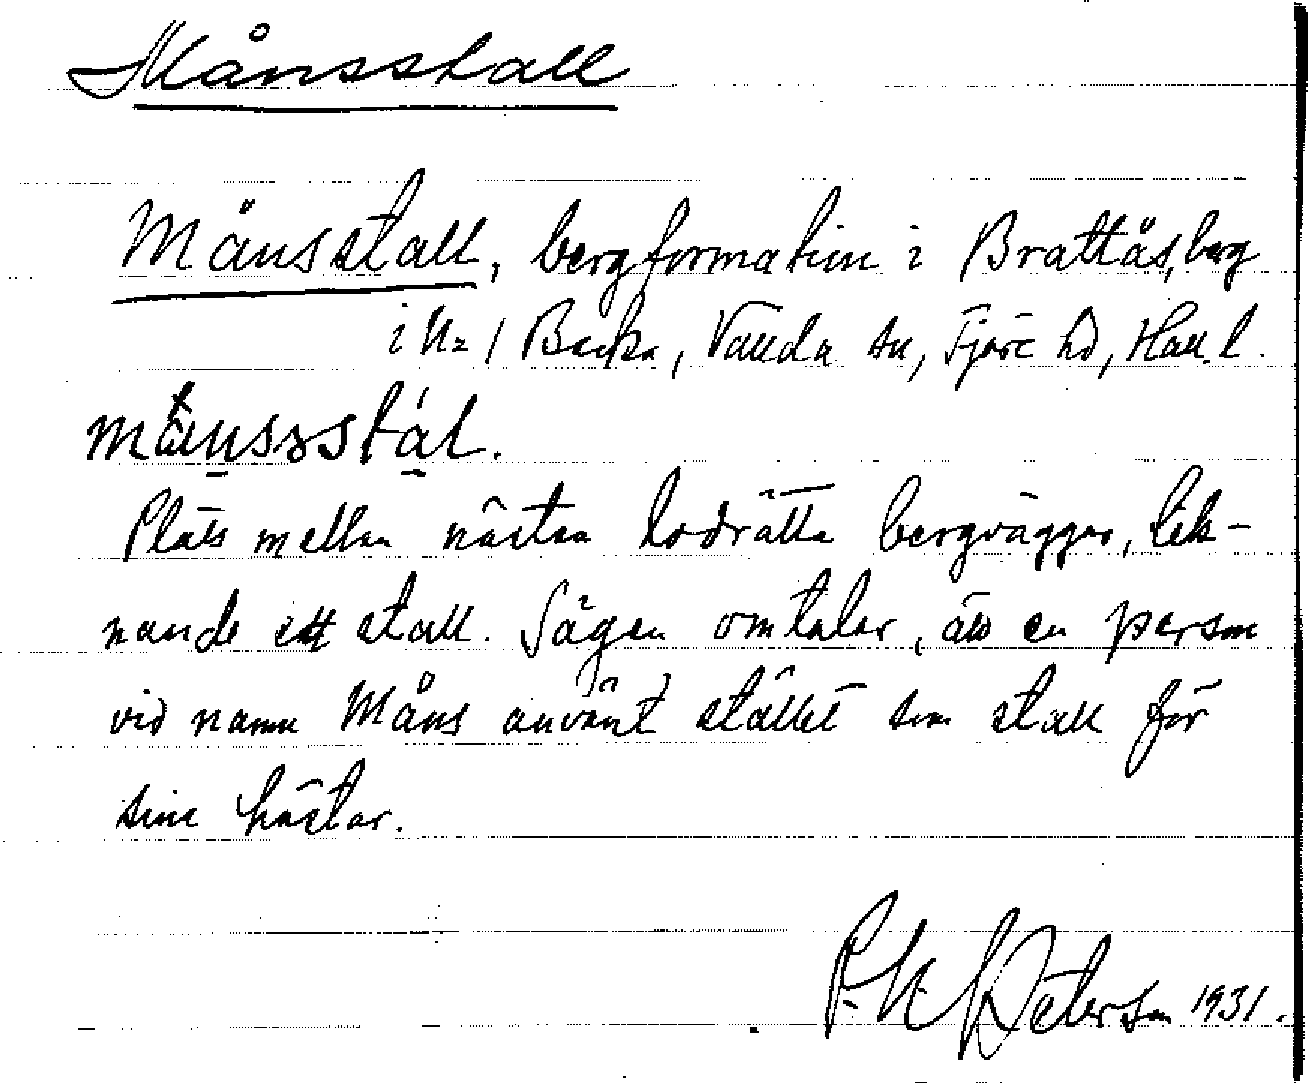 Månsstall
Månsstall, bergformation i Brattåsberg
i No 1 Backa, Vallda sn, Fjäre hd, Hall. l.
månsstál.
Plats mellan nästan lodrätta bergväggar, lik-
nande ett stall. Sägen omtalar, att en person
vid namn Måns använt stället som stall för
sina hästar.
P. N. Peterson 1931.